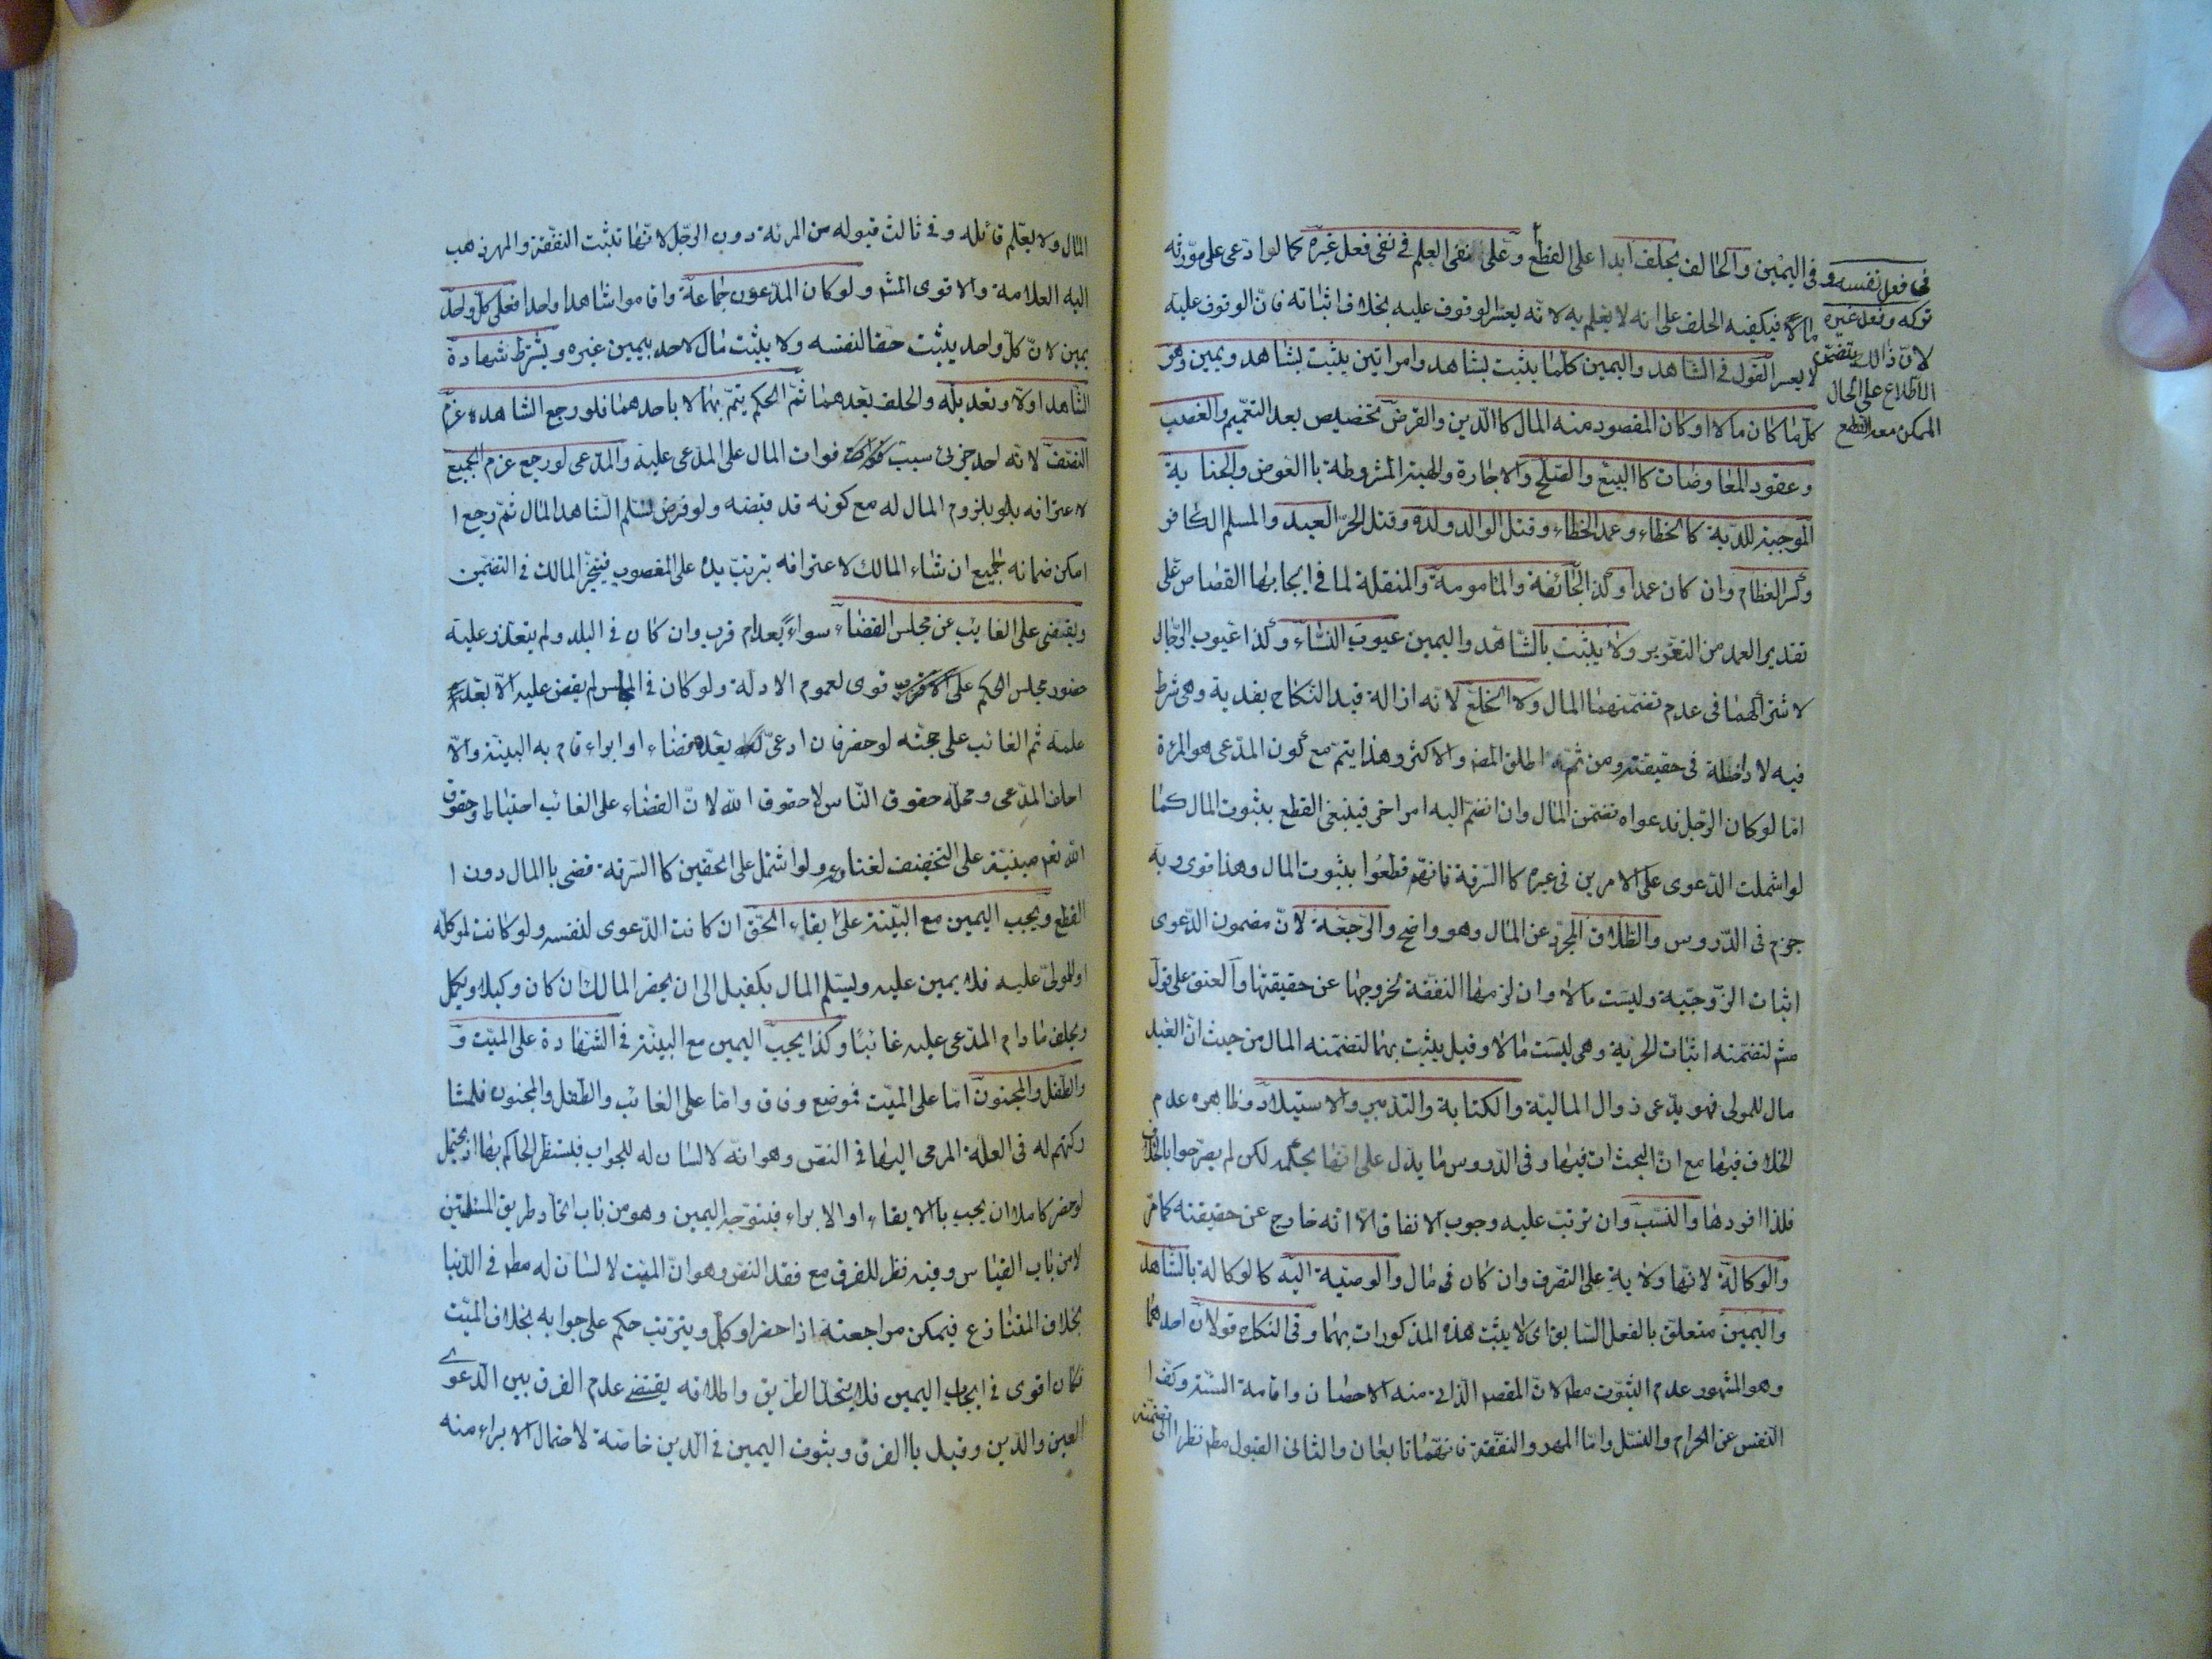 فى اليمين والحالف يحلف ابدا على القطع وعلى نفى العلم فى نفى فعل غيره كما لو ادعى على مورثه
مالا فيكفيه الحلف على انه لا يعلم به لانه يعسر الوقوف عليه بخلاف اثباته فان الوقوف عليه
لا يعسر القول فى الشاهد واليمين كلما يثبت بشاهد وامراتين يثبت بشاهد ويمين وهو
كل ما كان مالا او كان المقصود منه المال كاالدين والقرض تخصيص بعد التعميم والغصب
وعقود المعاوضات كاالبيع والصلح والاجارة والهبة المشروطة باالعوض والجناية
الموجبة للدية كالخطاء وعمد الخطاء وقتل الوالد ولده وقتل الحر العبد والمسلم الكافر
وكسر العظام وان كان عمدا وكذا الجائفة والمامومة والمنقلة لما فى ايجابها القصاص على
تقدير العمد من التغرير ولا يثبت بالشاهد واليمين عيوب النساء وكذا عيوب الرجال
لاشتراكهما فى عدم تضمنهما المال ولا الخلع لانه ازالة قيد النكاح بفدية وهى شرط
فيه لا داخلة فى حقيقته ومن ثم اطلق المض والاكثر وهذا يتم مع كون المدعى هو المرءة
اما لو كان الرجل فدعواه تضمن المال وان انضم اليه امر اخر فينبغى القطع بثبوت المال كما
لو اشملت الدعوى على الامرين فى غيره كاالسرقة فانهم قطعوا بثبوت المال وهذا قوى وبه
جزم فى الدروس والطلاق المجرد عن المال وهو واضح والرجعة لان مضمون الدعوى
اثبات الزوجية وليست مالا وان لزمها النفقة لخروجها عن حقيقتها والعتق على قول
مشـ لتضمنه اثبات الحرية وهى ليست مالا وقيل يثبت بهما لتضمنه المال من حيث ان العبد
مال للمولى فهو يدعى زوال المالية والكتابة والتدبير والاستيلاد وظاهره عدم
الخلاف فيها مع ان البحث ات فيها وفى الدروس ما يدل على انها بحكمه لكن لم يصرحوا بالخلاف
فلذا افردها والنسب وان ترتب عليه وجوب الانفاق الا انه خارج عن حقيقته كما مر
والوكالة لانها ولاية على التصرف وان كان فى مال والوصية اليه كالوكالة بالشاهد
واليمين متعلق بالفعل السابق اى لا يثبت هذه المذكورات بهما وفى النكاح قولان احدهما
وهو المشهور عدم الثبوت مطـ لان المقصـ الذاتى منه الاحصان واقامة السنة وكف ا
النفس عن الحرام والنسل واما المهر والنفقة فانهما تابعان والثانى القبول مطـ نظرا الى تضمنه
فى فعل نفسه و
تركه وفعل غيره
لان ذالك يتضمن
الاطلاع على الحال
الممكن معه القطع
المال ولا يعلم قائله وفى ثالث قبوله من المرئة دون الرجل لانها تثبت النفقة والمهر ذهب
اليه العلامة والاقوى المشـ ولو كان المدعون جماعة واقاموا شاهدا واحدا فعلى كل واحد
يمين لان كل واحد يثبت حقا لنفسه ولا يثبت مال لاحد بيمين غيره ويشترط شهادة
الشاهد اولا وتعديله والحلف بعدهما ثم الحكم يتم بهما لا باحدهما فلو رجع الشاهد غرم
النصف لانه احد جزئى سبب فوات المال على المدعى عليه والمدعى لو رجع غرم الجميع
لاعترافه بلزوم المال له مع كونه قد قبضه ولو فرض تسلم الشاهد المال ثم رجع ا
امكن ضمانه لجميع ان شاء المالك لاعترافه بترتب يده على المغصوب فيتخير المالك فى التضمين
ويقضى على الغايب عن مجلس القضاء سواء بعد ام قرب وان كان فى البلد ولم يتعذر عليه
حضور مجلس الحكم على الاقوى لعموم الادلة ولو كان فى المجلس لم يقض عليه الا بعد
علمه ثم الغائب على حجته لو حضر فان ادعى بعده قضاء او ابراء قام به البينة والا
احلف المدعى ومحله حقوق الناس لا حقوق الله لان القضاء على الغائب احتياط وحقوق
الله نعم مبنية على التخفيف لغناه ولو اشتمل على الحقين كاالسرقة قضى باالمال دون ا
القطع ويجب اليمين مع البينة على بقاء الحق ان كانت الدعوى لنفسه ولو كانت لموكله
او للمولى عليه فلا يمين عليه ويسلم المال بكفيل الى ان يحضر المالك ان كان وكيلا ويكمل
ويحلف ما دام المدعى عليه غائبا وكذا يجب اليمين مع البينة فى الشهادة على الميت و
والطفل والمجنون اما على الميت فموضع وفاق واما على الغائب والطفل والمجنون فلمشا
ركتهم له فى العلة المرمى اليها فى النص وهو انه لا لسان له للجواب فيستظهر الحاكم بها اذ يحتمل
لو حضر كاملا ان يجيب بالايفاء او الابراء فيتوجه اليمين وهو من باب اتحاد طريق المسئلتين
لا من باب القياس وفيه نظر للفرق مع فقد النص وهو ان الميت لا لسان له مطـ فى الدنيا
بخلاف المتنازع فيمكن مراجعته اذا حضر او كمل ويترتب حكم على جوابه بخلاف الميت
فكان اقوى فى ايجاب اليمين فلا يتحد الطريق واطلاقه يقتضى عدم الفرق بين الدعوى
العين والدين وقيل باالفرق وثبوت اليمين فى الدين خاصة لاحتمال الابراء منه